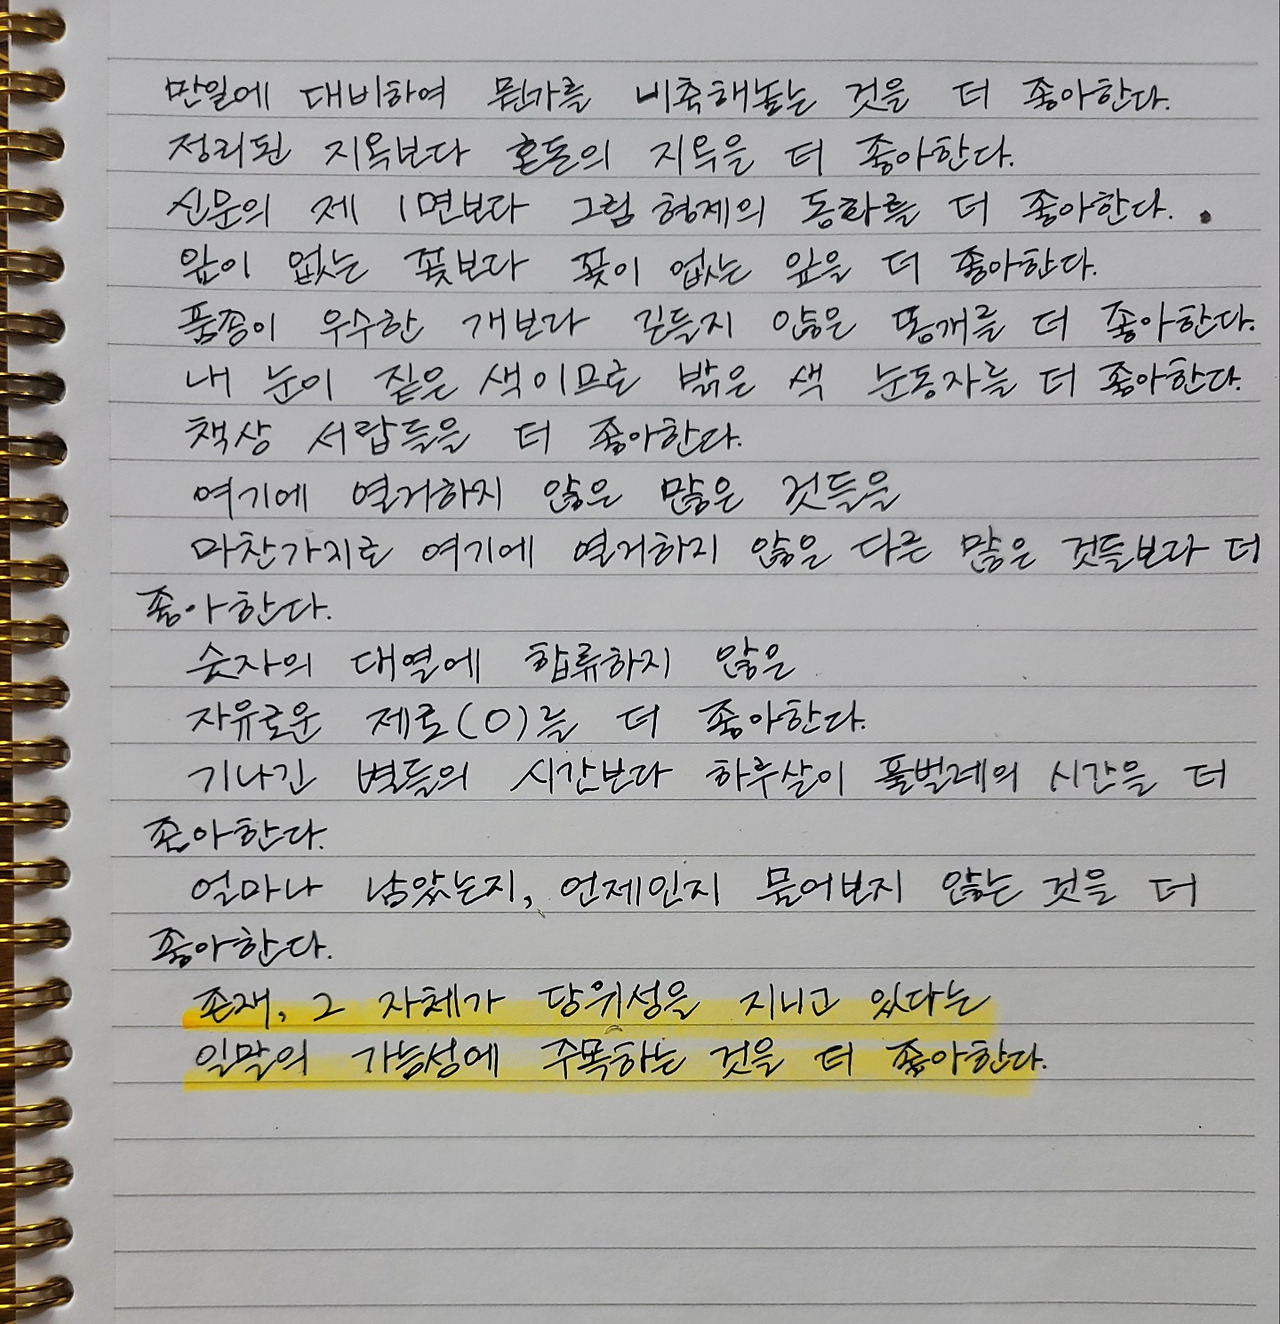 만일에 대비하여 뭔가를 비축해놓는 것을 더 좋아한다.
정리된 지옥보다 혼돈의 지옥을 더 좋아한다.
신문의 제 1면보다 그림 형제의 동화를 더 좋아한다.
잎이 없는 꽃보다 꽃이 없는 잎을 더 좋아한다.
품종이 우수한 개보다 길들지 않은 똥개를 더 좋아한다.
내 눈이 짙은 색이므로 밝은 색 눈동자를 더 좋아한다.
책상 서랍들을 더 좋아한다.
여기에 열거하지 않은 많은 것들을
마찬가지로 여기에 열거하지 않은 다른 많은 것들보다 더
좋아한다.
숫자의 대열에 합류하지 않은
자유로운 제로(0)를 더 좋아한다.
기나긴 별들의 시간보다 하루살이 풀벌레의 시간을 더
좋아한다.
얼마나 남았는지, 언제인지 물어보지 않는 것을 더
좋아한다.
존재, 그 자체가 당위성을 지니고 있다는
일말의 가능성에 주목하는 것을 더 좋아한다.